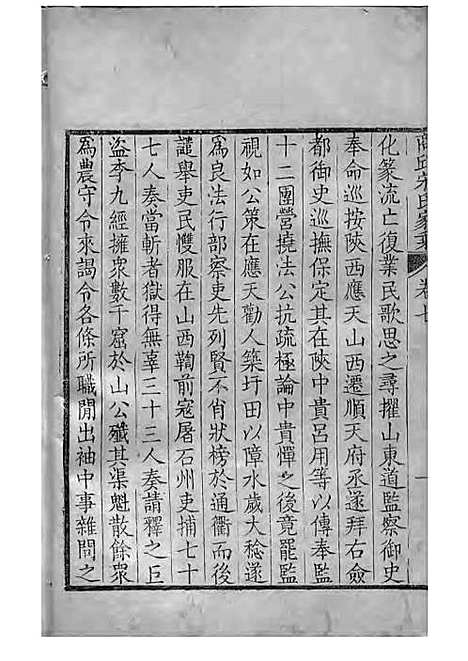 商丘宋氏家乘 卷七 一
化豪流亡復業民歌思之尋擢山東道監察御史
奉命巡按陝西應天山西遷順天府丞遂拜右僉
都御史巡撫保定其在陝中貴呂用等以傳奉監
十二團營撓法公抗疏極論中貴憚之後竟罷監
視如公策在應天勸人築圩田以障水歲大稔遂
為良法行部察吏先列賢不肖狀榜於通衢而後
讉舉吏民慴服在山西鞫前寇屠石州吏捕七十
七人奏當斬者獄得無辜三十三人奏請釋之巨
盜李九經擁衆數千窟於山公殲其渠魁散餘衆
為農守令來謁令各條所職閒出袖中事雜問之